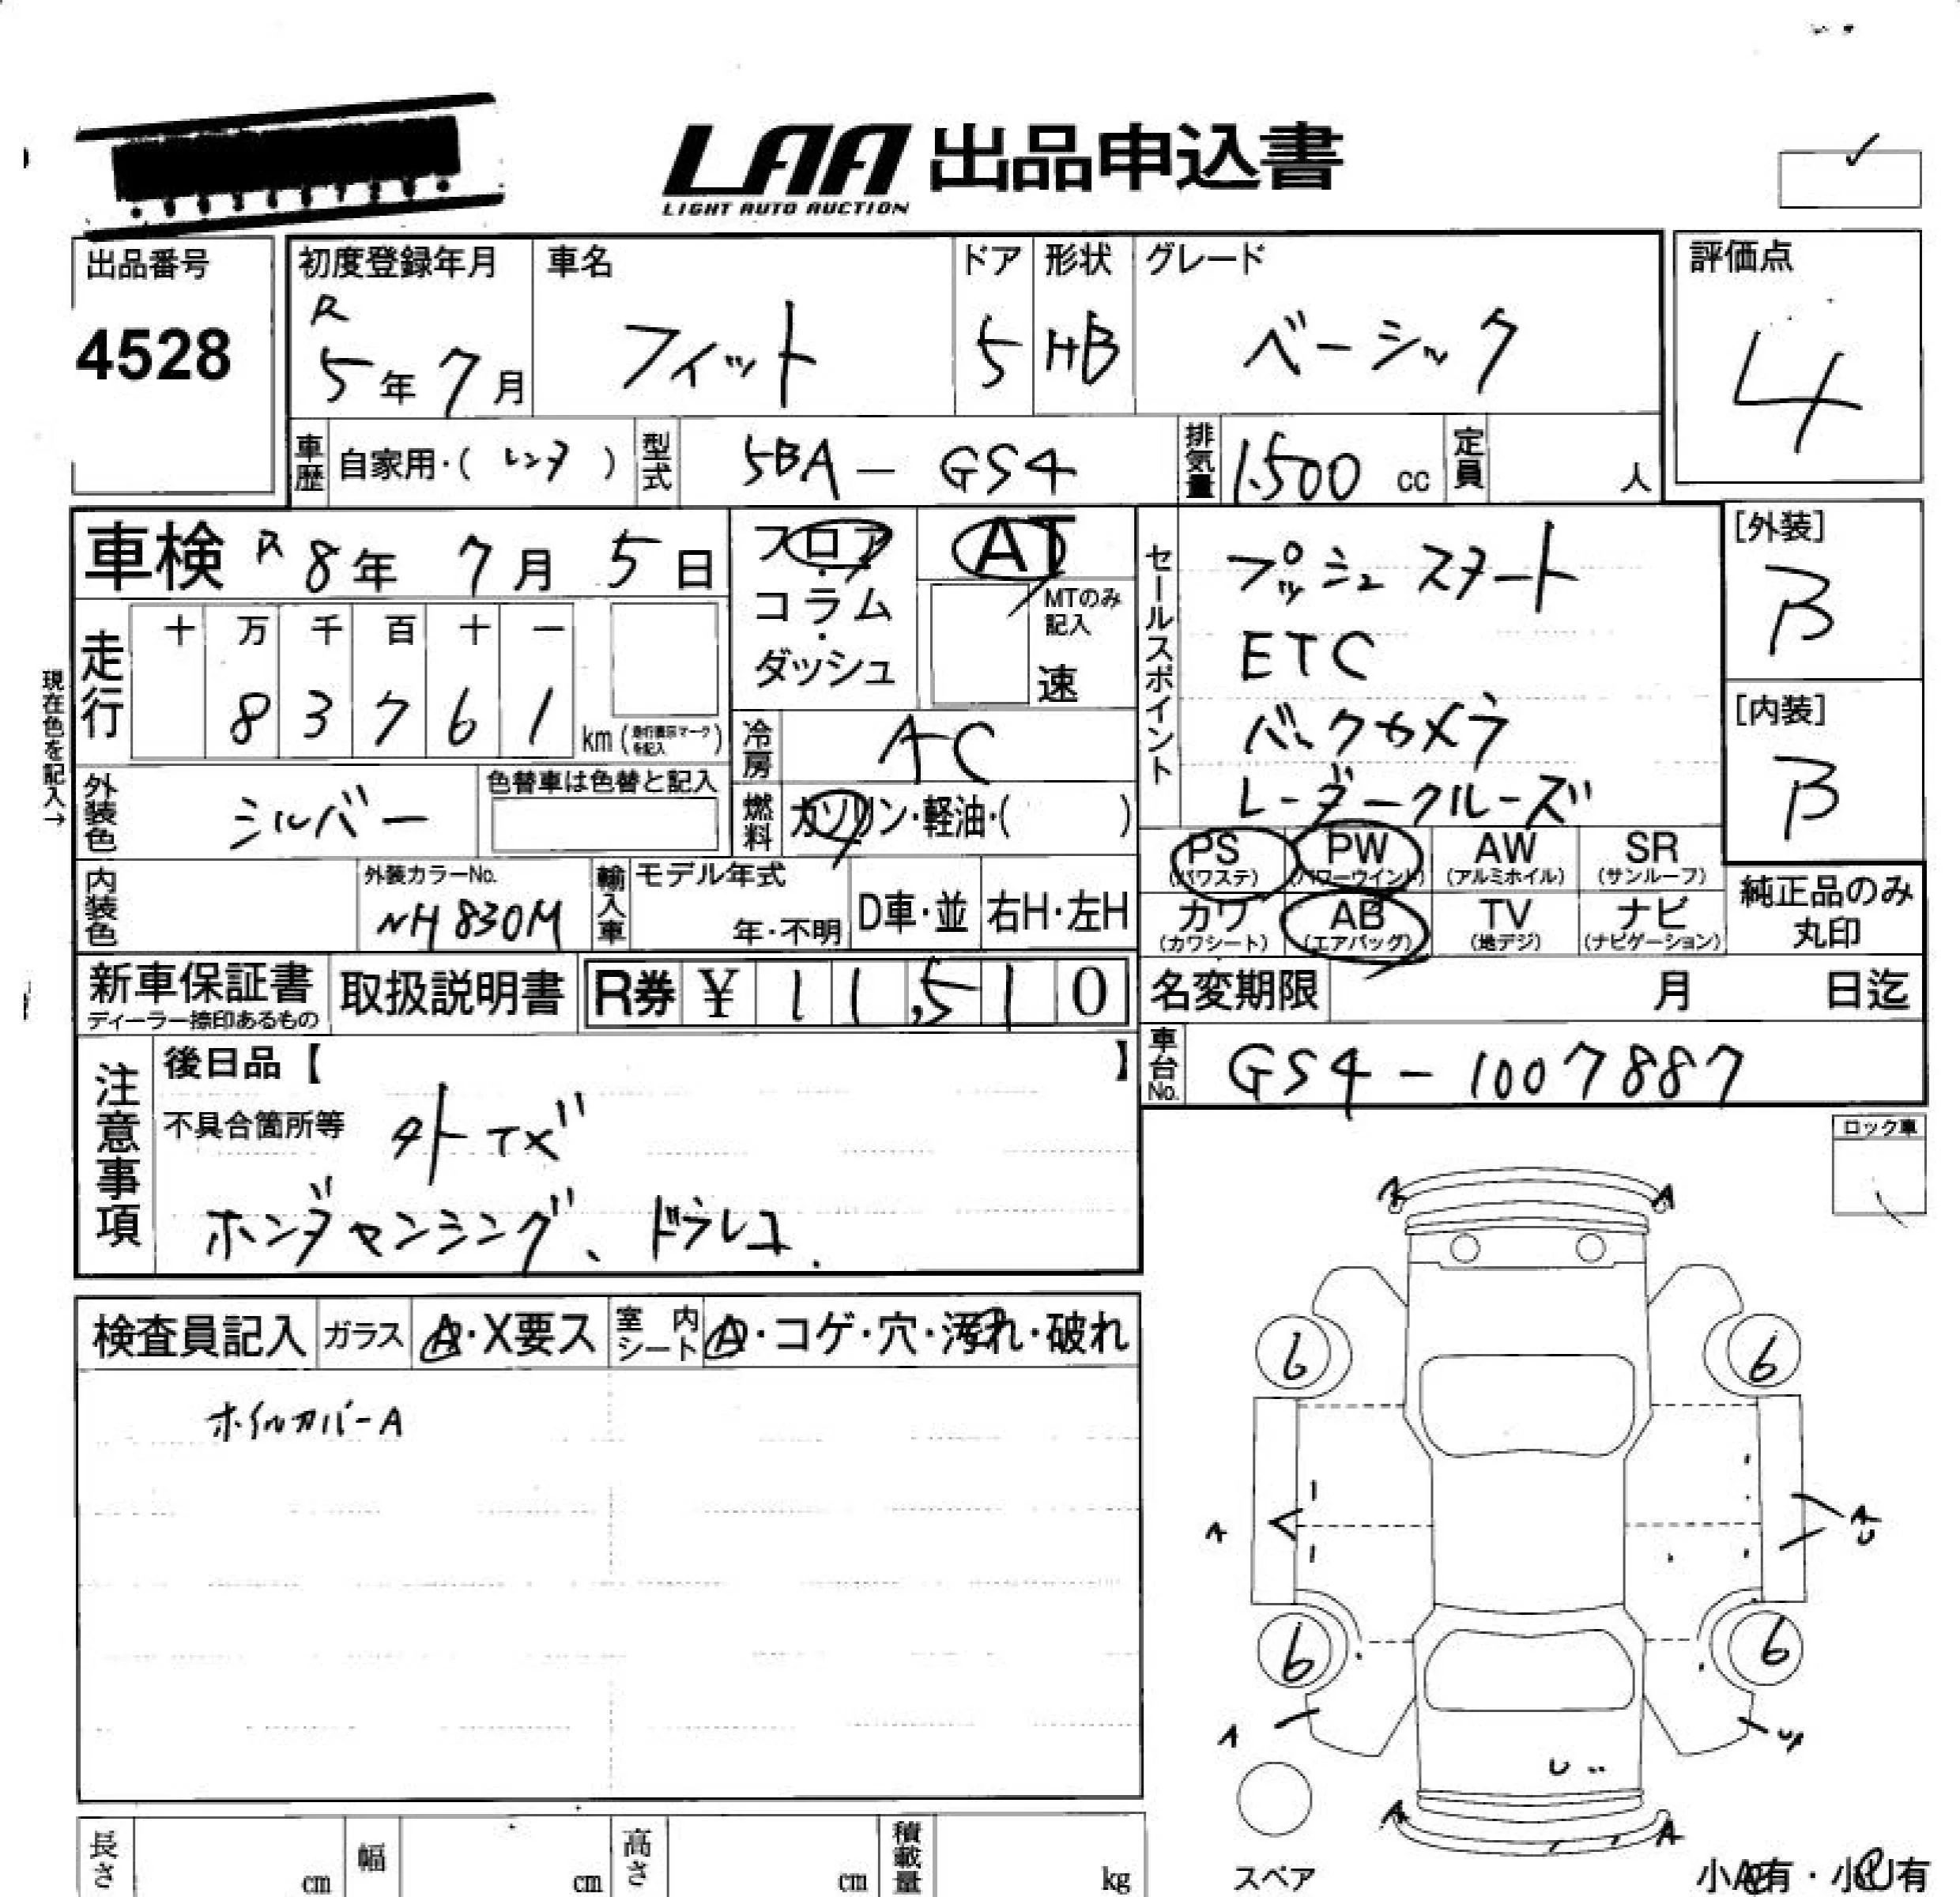 LAA 出品申込書
LIGHT AUTO AUCTION
出品番号
4528
初度登録年月
R
5年7月
車名
フィット
ドア
5
形状
HB
グレード
ベーシック
評価点
4
車歴
自家用・(レンタ)
型式
5BA-GS4
排気量
1500 cc
定員
人
車検 R8年7月5日
フロア・
コラム・
ダッシュ
AT
MTのみ
記入
速
セールスポイント
プッシュスタート
ETC
バックカメラ
レーダークルーズ
[外装]
B
[内装]
B
現在色を記入→
走行
十 万 千 百 十 一
8 3 7 6 1
km(走行表示マークを記入)
冷房
AC
外装色
シルバー
色替車は色替と記入
燃料
ガソリン・軽油・( )
PS
(パワステ)
PW
(パワーウインド)
AW
(アルミホイル)
SR
(サンルーフ)
カワ
(カワシート)
AB
(エアバッグ)
TV
(地デジ)
ナビ
(ナビゲーション)
純正品のみ
丸印
内装色
外装カラーNo.
NH830M
輸入車
モデル年式
年・不明
D車・並
右H・左H
新車保証書
ディーラー捺印あるもの
取扱説明書
R券 ¥ 11,510
名変期限
月 日迄
車台No.
GS4-1007887
注意事項
後日品【 】
不具合箇所等
外キズ
ホンダセンシング、ドラレコ.
ロック車
検査員記入
ガラス
A・X要ス
室内シート
A・コゲ・穴・汚れ・破れ
ホイルカバーA
A A
6 6
A
A
U
6 6
A
U
A A
スペア
小A有・小U有
長さ
cm
幅
cm
高さ
cm
積載量
kg